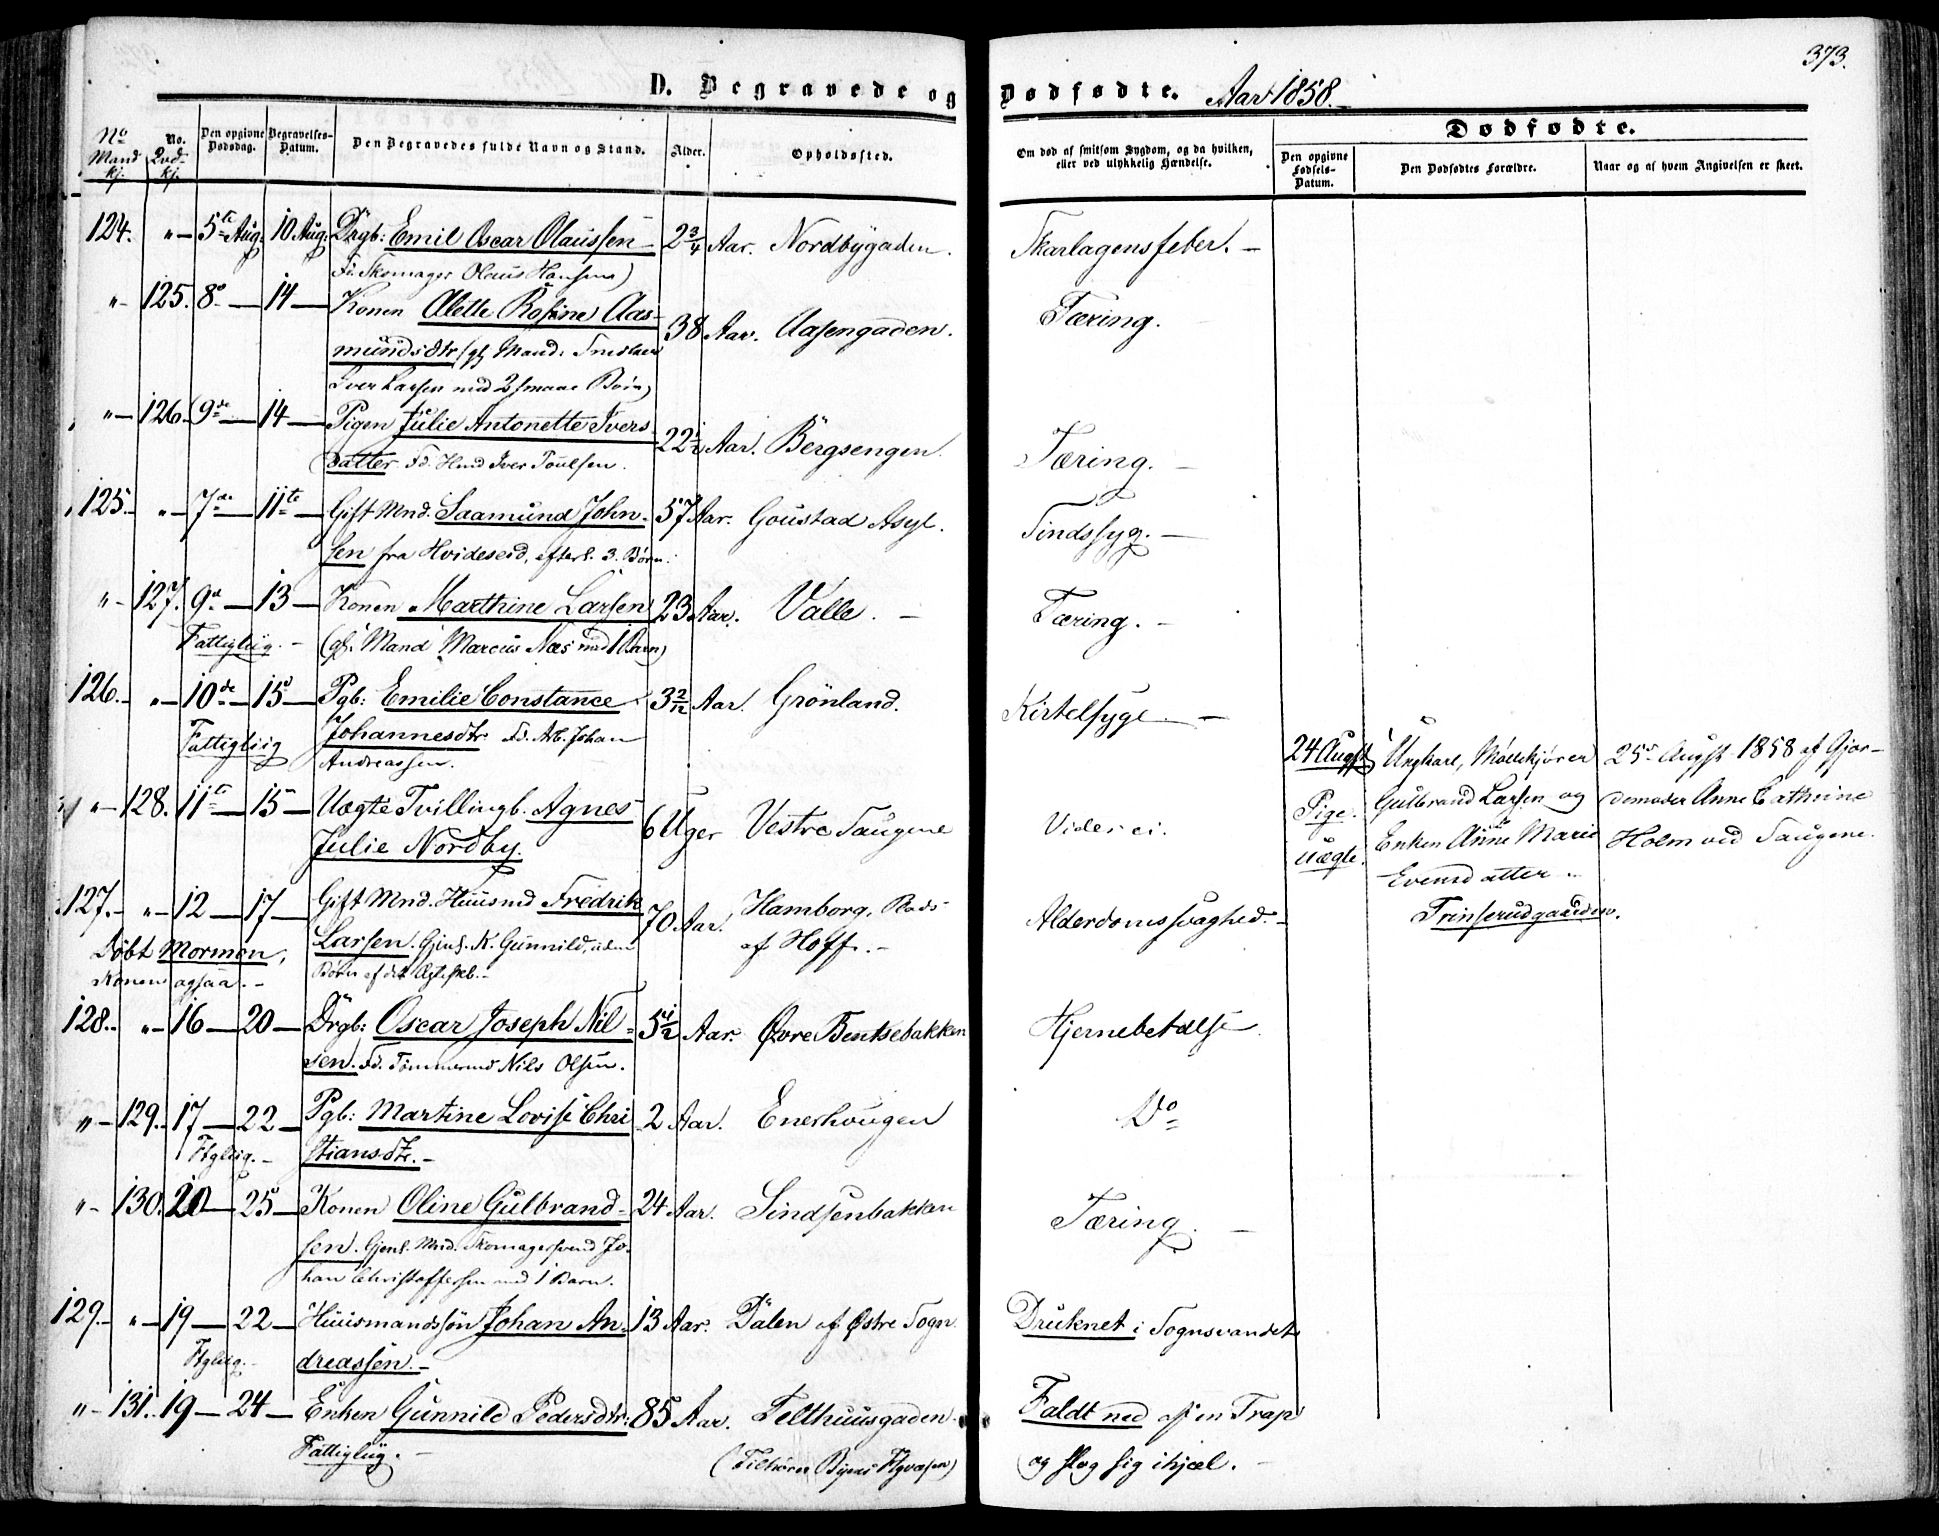 373.
D. Begravede og Dødfødte. Aar 1858.
Dødfødte.
No Mandkj.
No. Qvdkj.
Den opgivne Dødsdag.
Begravelses-Datum.
Den Begravedes fulde Navn og Stand.
Alder.
Opholdssted.
Om død af smitsom Sygdom, og da hvilken, eller ved ulykkelig Hændelse.
Den opgivne Fødsels-Datum.
Den Dødfødtes Forældre.
Naar og af hvem Angivelsen er skeet.
124. " 5te Aug. 10 Aug: Drgb: Emil Oscar Olaussen 2 3/4 Aar. Nordbygaden. Skarlagensfeber.
Fd. Skomager Olaus Hansen)
" 125. 8 14 Konen Olette Rosine Aas- 38 Aar. Aasengaden. Tæring.
mundsdtr (gl Mand:
Iver Larsen med 2 smaae Børn)
" 126. 9de 14 Pigen Julie Antonette Ivers- 22 1/2 Aar. Bergsengen. Tæring.
datter Fd. Hmd Iver Poulsen.
125. " 7de 11te Gift Mnd. Saamund John- 57 Aar. Goustad Asyl. Sindssyg.
sen fra Hvideseid, efterl. 3. Børn.
" 127. 9d 13 Konen Marthine Larsen 23 Aar. Valle. Tæring.
Fattigliig. (gl. Mand Marcus Næs med 1 Barn)
126. " 10de 15d Pgb: Emilie Constance 3 2/12 Aar. Grönland. Kirtelsyge.
Fattigliig Johannesdtr. Fd. Arb. Johan
Andreassen.
24 Augst Ungkarl, Møllekjører 25de Augst 1858 af Gjor-
" 128. 11te 15 Uægte Tvillingb. Agnes 6 Uger Vestre Saugene Vides ei.
Pige. Gulbrand Larsen og demoder Anne Cathrine
Julie Nordby.
uægte. Enken Anne Marie Holm ved Saugene.
Evensdatter
127. " 12 17 Gift Mnd. Huusmd Fredrik 70 Aar. Hamborg, Alderdomssvaghed.
Trinserudgaarden.
Døbt Mormon, Larsen. Gjenl. K. Gunnild, uden af Hoff.
Konen ogsaa. Børn af det Ægteskb.
128. " 16 20 Drgb: Oscar Joseph Nil- 5 1/2 Aar. Øvre Bentsebakken Hjernebetælse
sen. Fd. Tømmermd Nils Olsen.
" 129. 17 22 Pgb: Martine Lovise Chri 2 Aar. Enerhougen Do
Ftgliig. stiansdtr.
" 130. 20 25 Konen Oline Gulbrand- 24 Aar. Sindsenbakken Tæring.
sen. Gjenl. Mnd. Skomagersvend Jo-
han Christoffersen med 1 Barn.
129. " 19 22 Huusmandssøn Johan An- 13 Aar. Dalen af Østre Sogn. Druknet i Sognsvandet
Ftgliig. dreassen.
" 131. 19 24 Enken Gunnild Pedersdtr: 85 Aar. Telthuusgaden. Faldt ned af en Trap
Fattigliig. (Tilhører Byens Ftgvæsen) og slog sig ihjel.